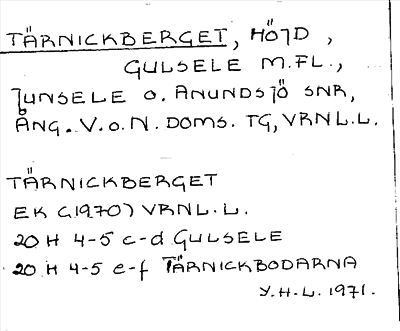 TÄRNICKBERGET, HÖJD,
GULSELE M.FL.,
JUNSELE O. ANUNDSJÖ SNR,
ÅNG. V. O. N. DOMS. TG, VRNL.L.
TÄRNICKBERGET
EK (1970) VRNL.L.
20 H 4-5 c-d GULSELE
20 H 4-5 e-f TÄRNICKBODARNA
Y.H-L. 1971.